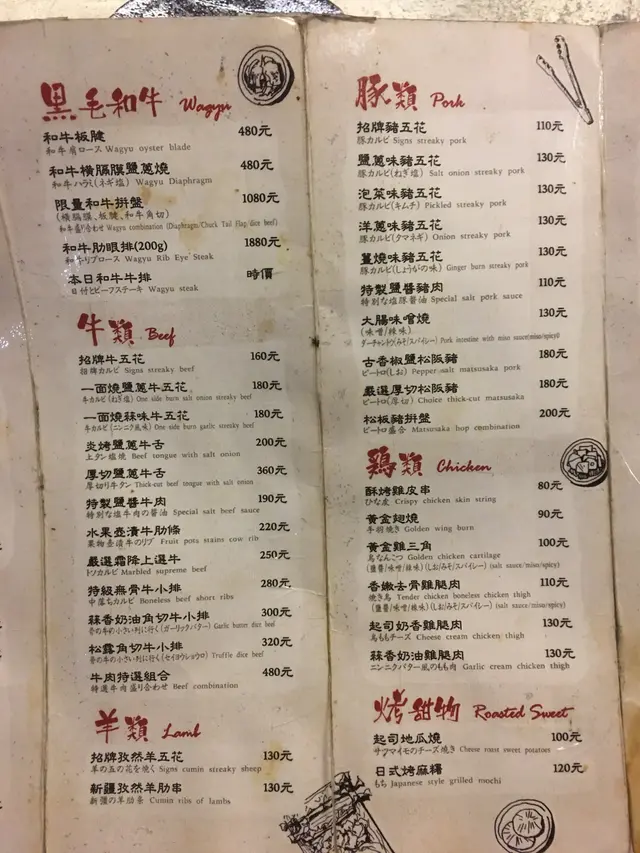 黑毛和牛 Wagyu
和牛板腱 480元
和牛肩ロース Wagyu oyster blade
和牛橫膈膜鹽蔥燒 480元
和牛ハラミ(ネギ塩) Wagyu Diaphragm
限量和牛拼盤 1080元
(橫膈膜、板腱、和牛角切)
和牛盛り合わせ Wagyu combination (Diaphragm/Chuck Tail Flag/dice beef)
和牛肋眼排(200g) 1880元
和牛リブロース Wagyu Rib Eye Steak
本日和牛牛排 時價
日付とビーフステーキ Wagyu steak
牛類 Beef
招牌牛五花 160元
招牌カルビ Signs streaky beef
一面燒鹽蔥牛五花 180元
牛カルビ(ねぎ塩) One side burn salt onion streaky beef
一面燒蒜味牛五花 180元
牛カルビ(ニンニク風味) One side burn garlic streaky beef
炎烤鹽蔥牛舌 200元
上タン塩焼 Beef tongue with salt onion
厚切鹽蔥牛舌 360元
厚切り牛タン Thick-cut beef tongue with salt onion
特製鹽醬牛肉 190元
特別な塩牛肉の醬油 Special salt beef sauce
水果壺漬牛肋條 220元
果物壺漬牛のリブ Fruit pots stains cow rib
嚴選霜降上選牛 250元
トソカルビ Marbled supreme beef
特級無骨牛小排 280元
中落ちカルビ Boneless beef short ribs
蒜香奶油角切牛小排 300元
骨の牛の小さい列に行く(ガーリックバター) Garlic butter dice beef
松露角切牛小排 320元
骨の牛の小さい列に行く(セイヨウショウロ) Truffle dice beef
牛肉特選組合 480元
特選牛肉盛り合わせ Beef combination
羊類 Lamb
招牌孜然羊五花 130元
羊の五の花を焼く Signs cumin streaky sheep
新疆孜然羊肋串 130元
新疆の羊肋条 Cumin ribs of lambs
豚類 Pork
招牌豬五花 110元
豚カルビ Signs streaky pork
鹽蔥味豬五花 130元
豚カルビ(ねぎ塩) Salt onion streaky pork
泡菜味豬五花 130元
豚カルビ(キムチ) Pickled streaky pork
洋蔥味豬五花 130元
豚カルビ(タマネギ) Onion streaky pork
薑燒味豬五花 130元
豚カルビ(しょうがの味) Ginger burn streaky pork
特製鹽醬豬肉 110元
特別な塩豚醬油 Special salt pork sauce
大腸味噌燒 130元
(味噌/辣味)
ダーチャントウ(みそ/スパイシー) Pork intestine with miso sauce(miso/spicy)
古香椒鹽松阪豬 180元
ピートロ(しお) Pepper salt matsusaka pork
嚴選厚切松阪豬 180元
ピートロ(厚切) Choice thick-cut matsusaka
松板豬拼盤 200元
ピートロ盛合 Matsusaka hop combination
鶏類 Chicken
酥烤雞皮串 80元
ひな皮 Crispy chicken skin string
黃金翅燒 90元
手羽焼き Golden wing burn
黃金雞三角 100元
鳥なんこつ Golden chicken cartilage
(鹽醬/味噌/辣味) (しお/みそ/スパイシー) (salt sauce/miso/spicy)
香嫩去骨雞腿肉 110元
焼き鳥 Tender chicken boneless chicken thigh
(鹽醬/味噌/辣味) (しお/みそ/スパイシー) (salt sauce/miso/spicy)
起司奶香雞腿肉 130元
鳥ももチーズ Cheese cream chicken thigh
蒜香奶油雞腿肉 130元
ニンニクバター風のもも肉 Garlic cream chicken thigh
烤甜物 Roasted Sweet
起司地瓜燒 100元
サツマイモのチーズ焼き Cheese roast sweet potatoes
日式烤麻糬 120元
もち Japanese style grilled mochi